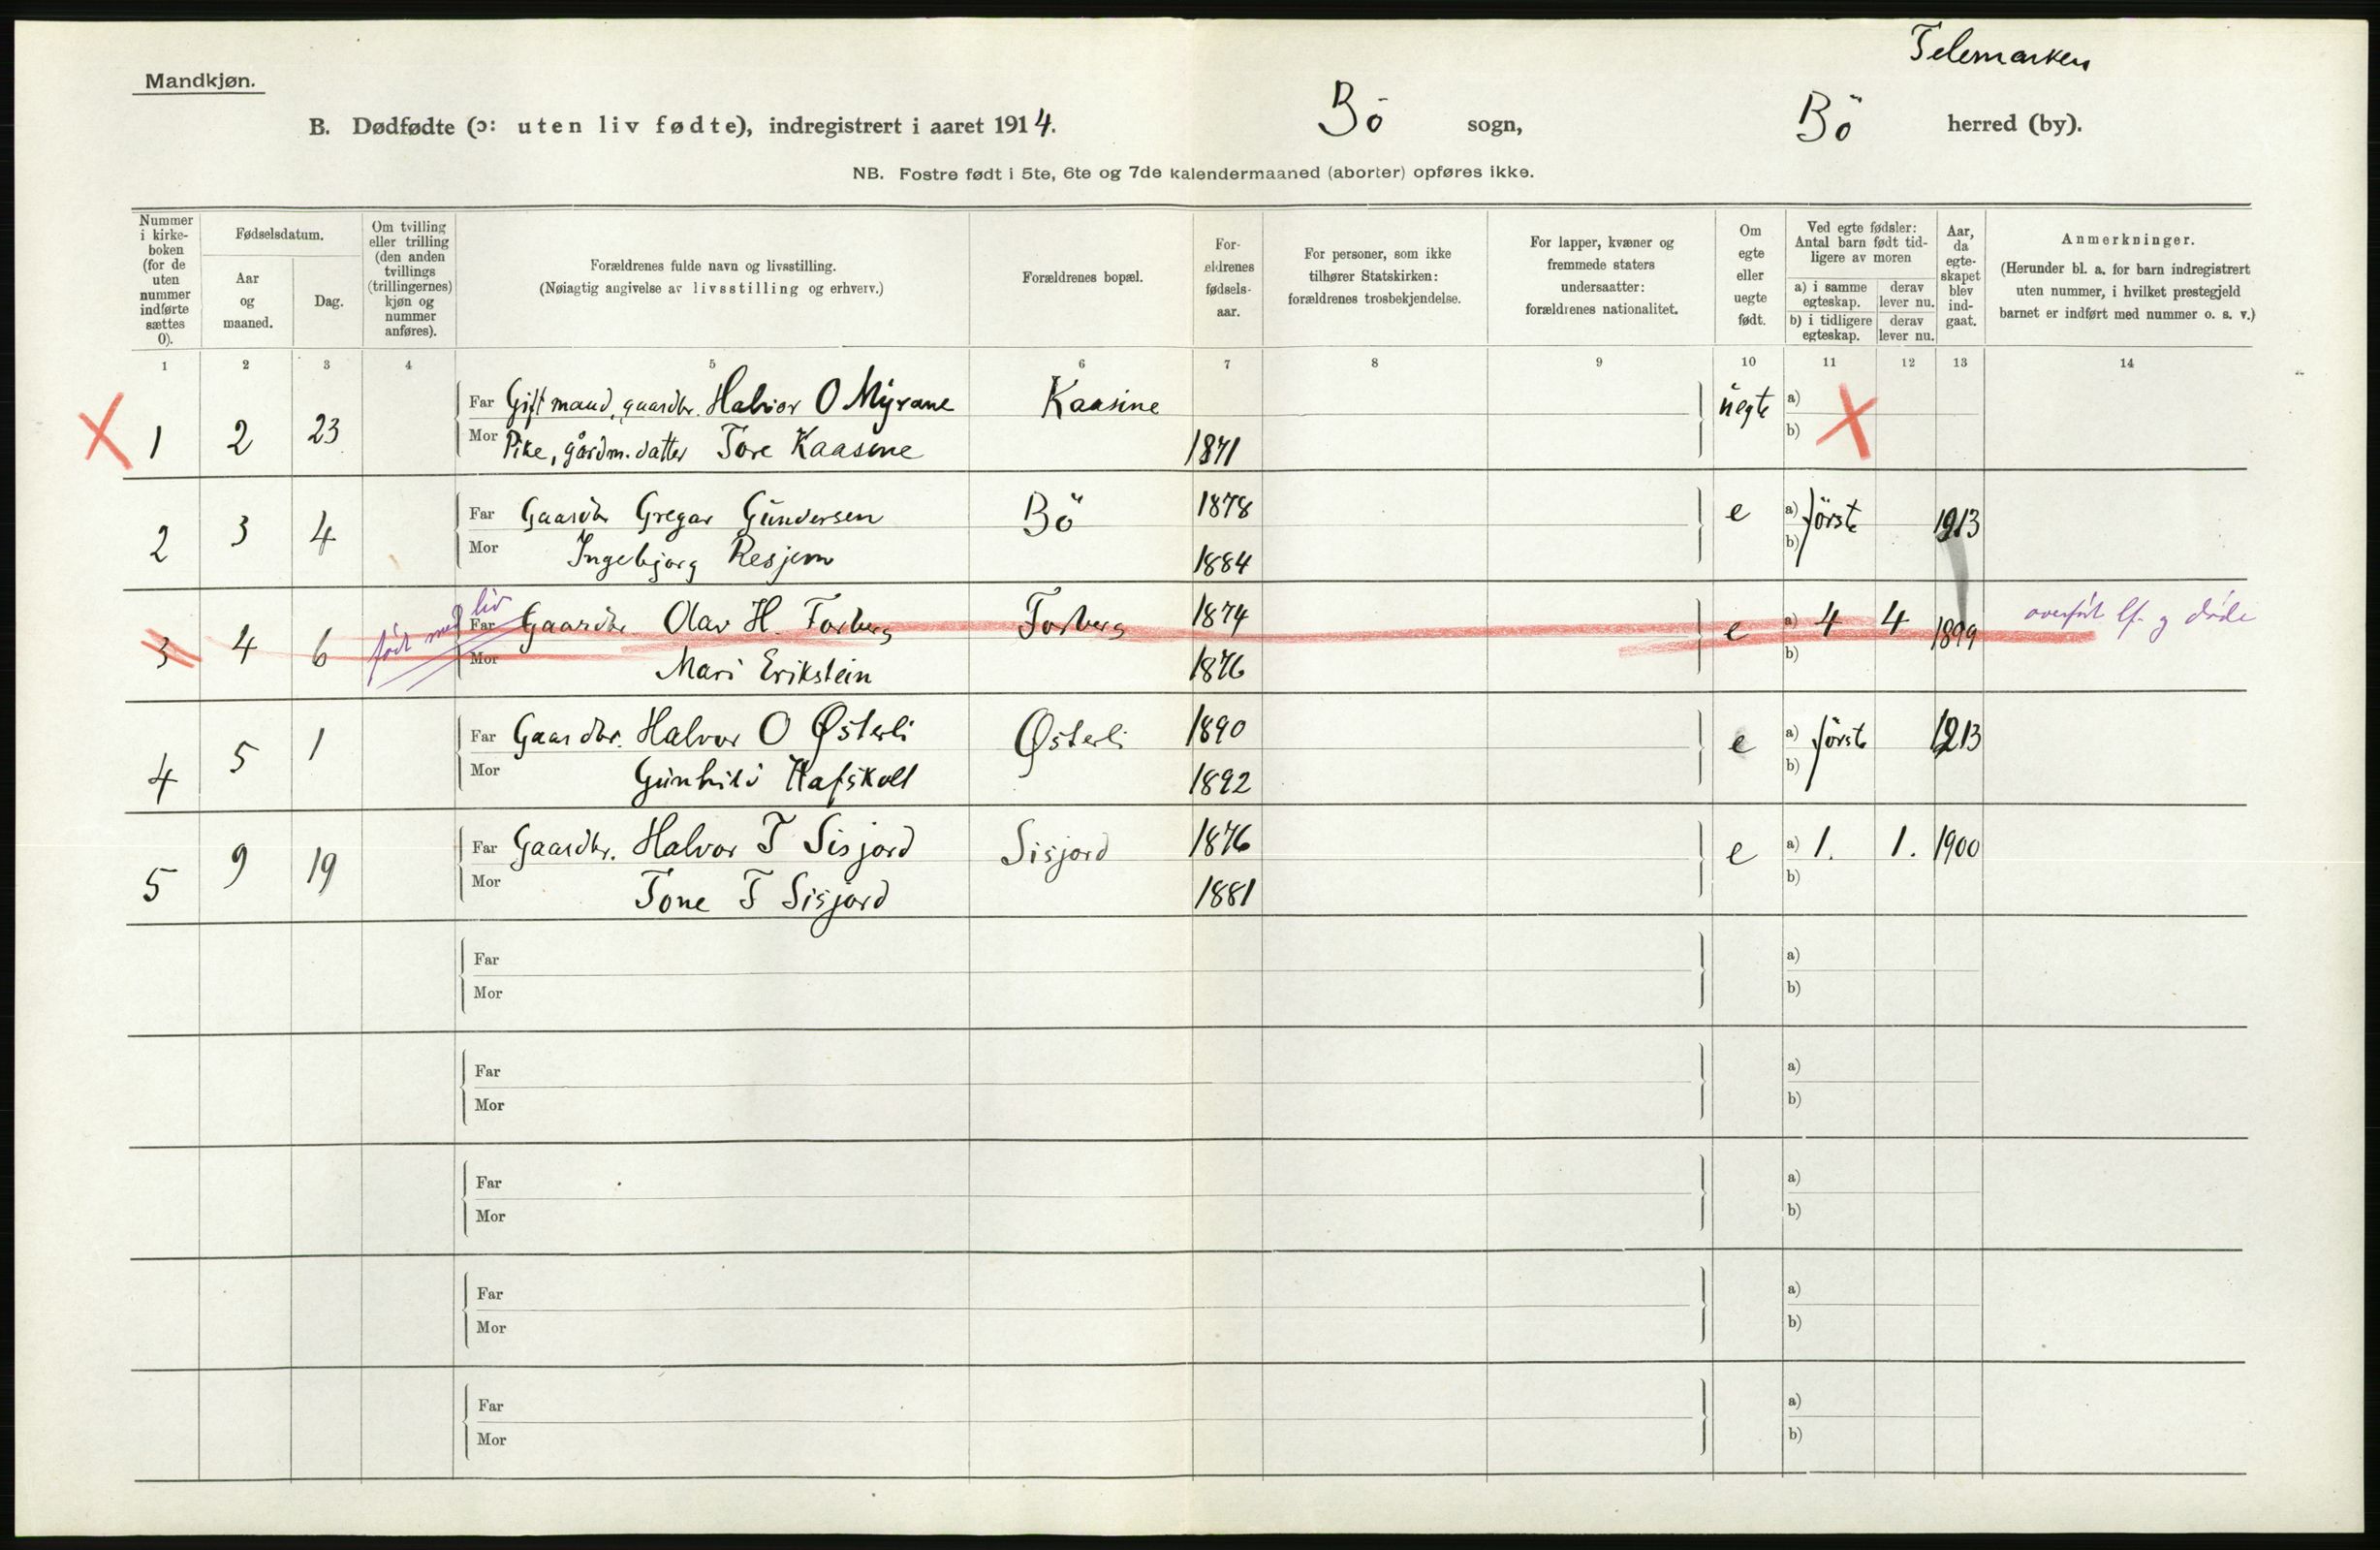 Telemarken
Mandkjøn.
B. Dødfødte (ɔ: uten liv fødte), indregistrert i aaret 1914. Bö sogn, Bö herred (by).
NB. Fostre født i 5te, 6te og 7de kalendermaaned (aborter) opføres ikke.
Nummer i kirke-boken (for de uten nummer indførte sættes 0).
Fødselsdatum.
Aar og maaned.
Dag.
Om tvilling eller trilling (den anden tvillings (trillingernes) kjøn og nummer anføres).
Forældrenes fulde navn og livsstilling.
(Nøiagtig angivelse av livsstilling og erhverv.)
Forældrenes bopæl.
For-ældrenes fødsels-aar.
For personer, som ikke tilhører Statskirken: forældrenes trosbekjendelse.
For lapper, kvæner og fremmede staters undersaatter: forældrenes nationalitet.
Om egte eller uegte født.
Ved egte fødsler: Antal barn født tid-ligere av moren
a) i samme egteskap. derav lever nu.
b) i tidligere egteskap. derav lever nu.
Aar, da egte-skapet blev ind-gaat.
Anmerkninger.
(Herunder bl. a. for barn indregistrert uten nummer, i hvilket prestegjeld barnet er indført med nummer o. s. v.)
1 2 3 4 5 6 7 8 9 10 11 12 13 14
X 1 2 23 Far Gift mand, gaardbr. Halvor O Myrane Kaasine üegte a) X
Mor Pike, gårdm. datter Tore Kaasine 1871 b)
2 3 4 Far Gaardbr Gregar Gündersen Bö 1878 e a) förste 1913
Mor Ingebjørg Resjem 1884 b)
3 4 6 født med liv Far Gaardbr. Olav H. Forberg Forberg 1874 e a) 4 4 1899 overført lf. g døde
Mor Mari Erikstein 1876 b)
4 5 1 Far Gaardbr. Halvor O Østerli Østerli 1890 e a) förste 1913
Mor Günhild Hafskoll 1892 b)
5 9 19 Far Gaardbr. Halvor T Sisjord Sisjord 1876 e a) 1. 1. 1900
Mor Tone T Sisjord 1881 b)
Far a)
Mor b)
Far a)
Mor b)
Far a)
Mor b)
Far a)
Mor b)
Far a)
Mor b)